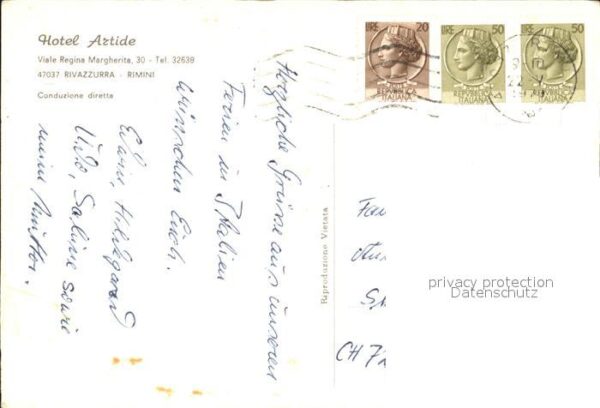 Hotel Artide
Viale Regina Margherita, 30 - Tel. 32638
47037 RIVAZZURRA - RIMINI
Conduzione diretta
LIRE 20
REPUBBLICA
ITALIANA
LIRE 50
REPUBBLICA
ITALIANA
LIRE 50
REPUBBLICA
ITALIANA
Herzliche Grüsse aus unseren
Ferien in Italien
wünschen Euch.
Edwin, Hildegard
Udo, Sabine sowie
meine Mutter.
Riproduzione Vietata
Fam
CH 7
privacy protection
Datenschutz